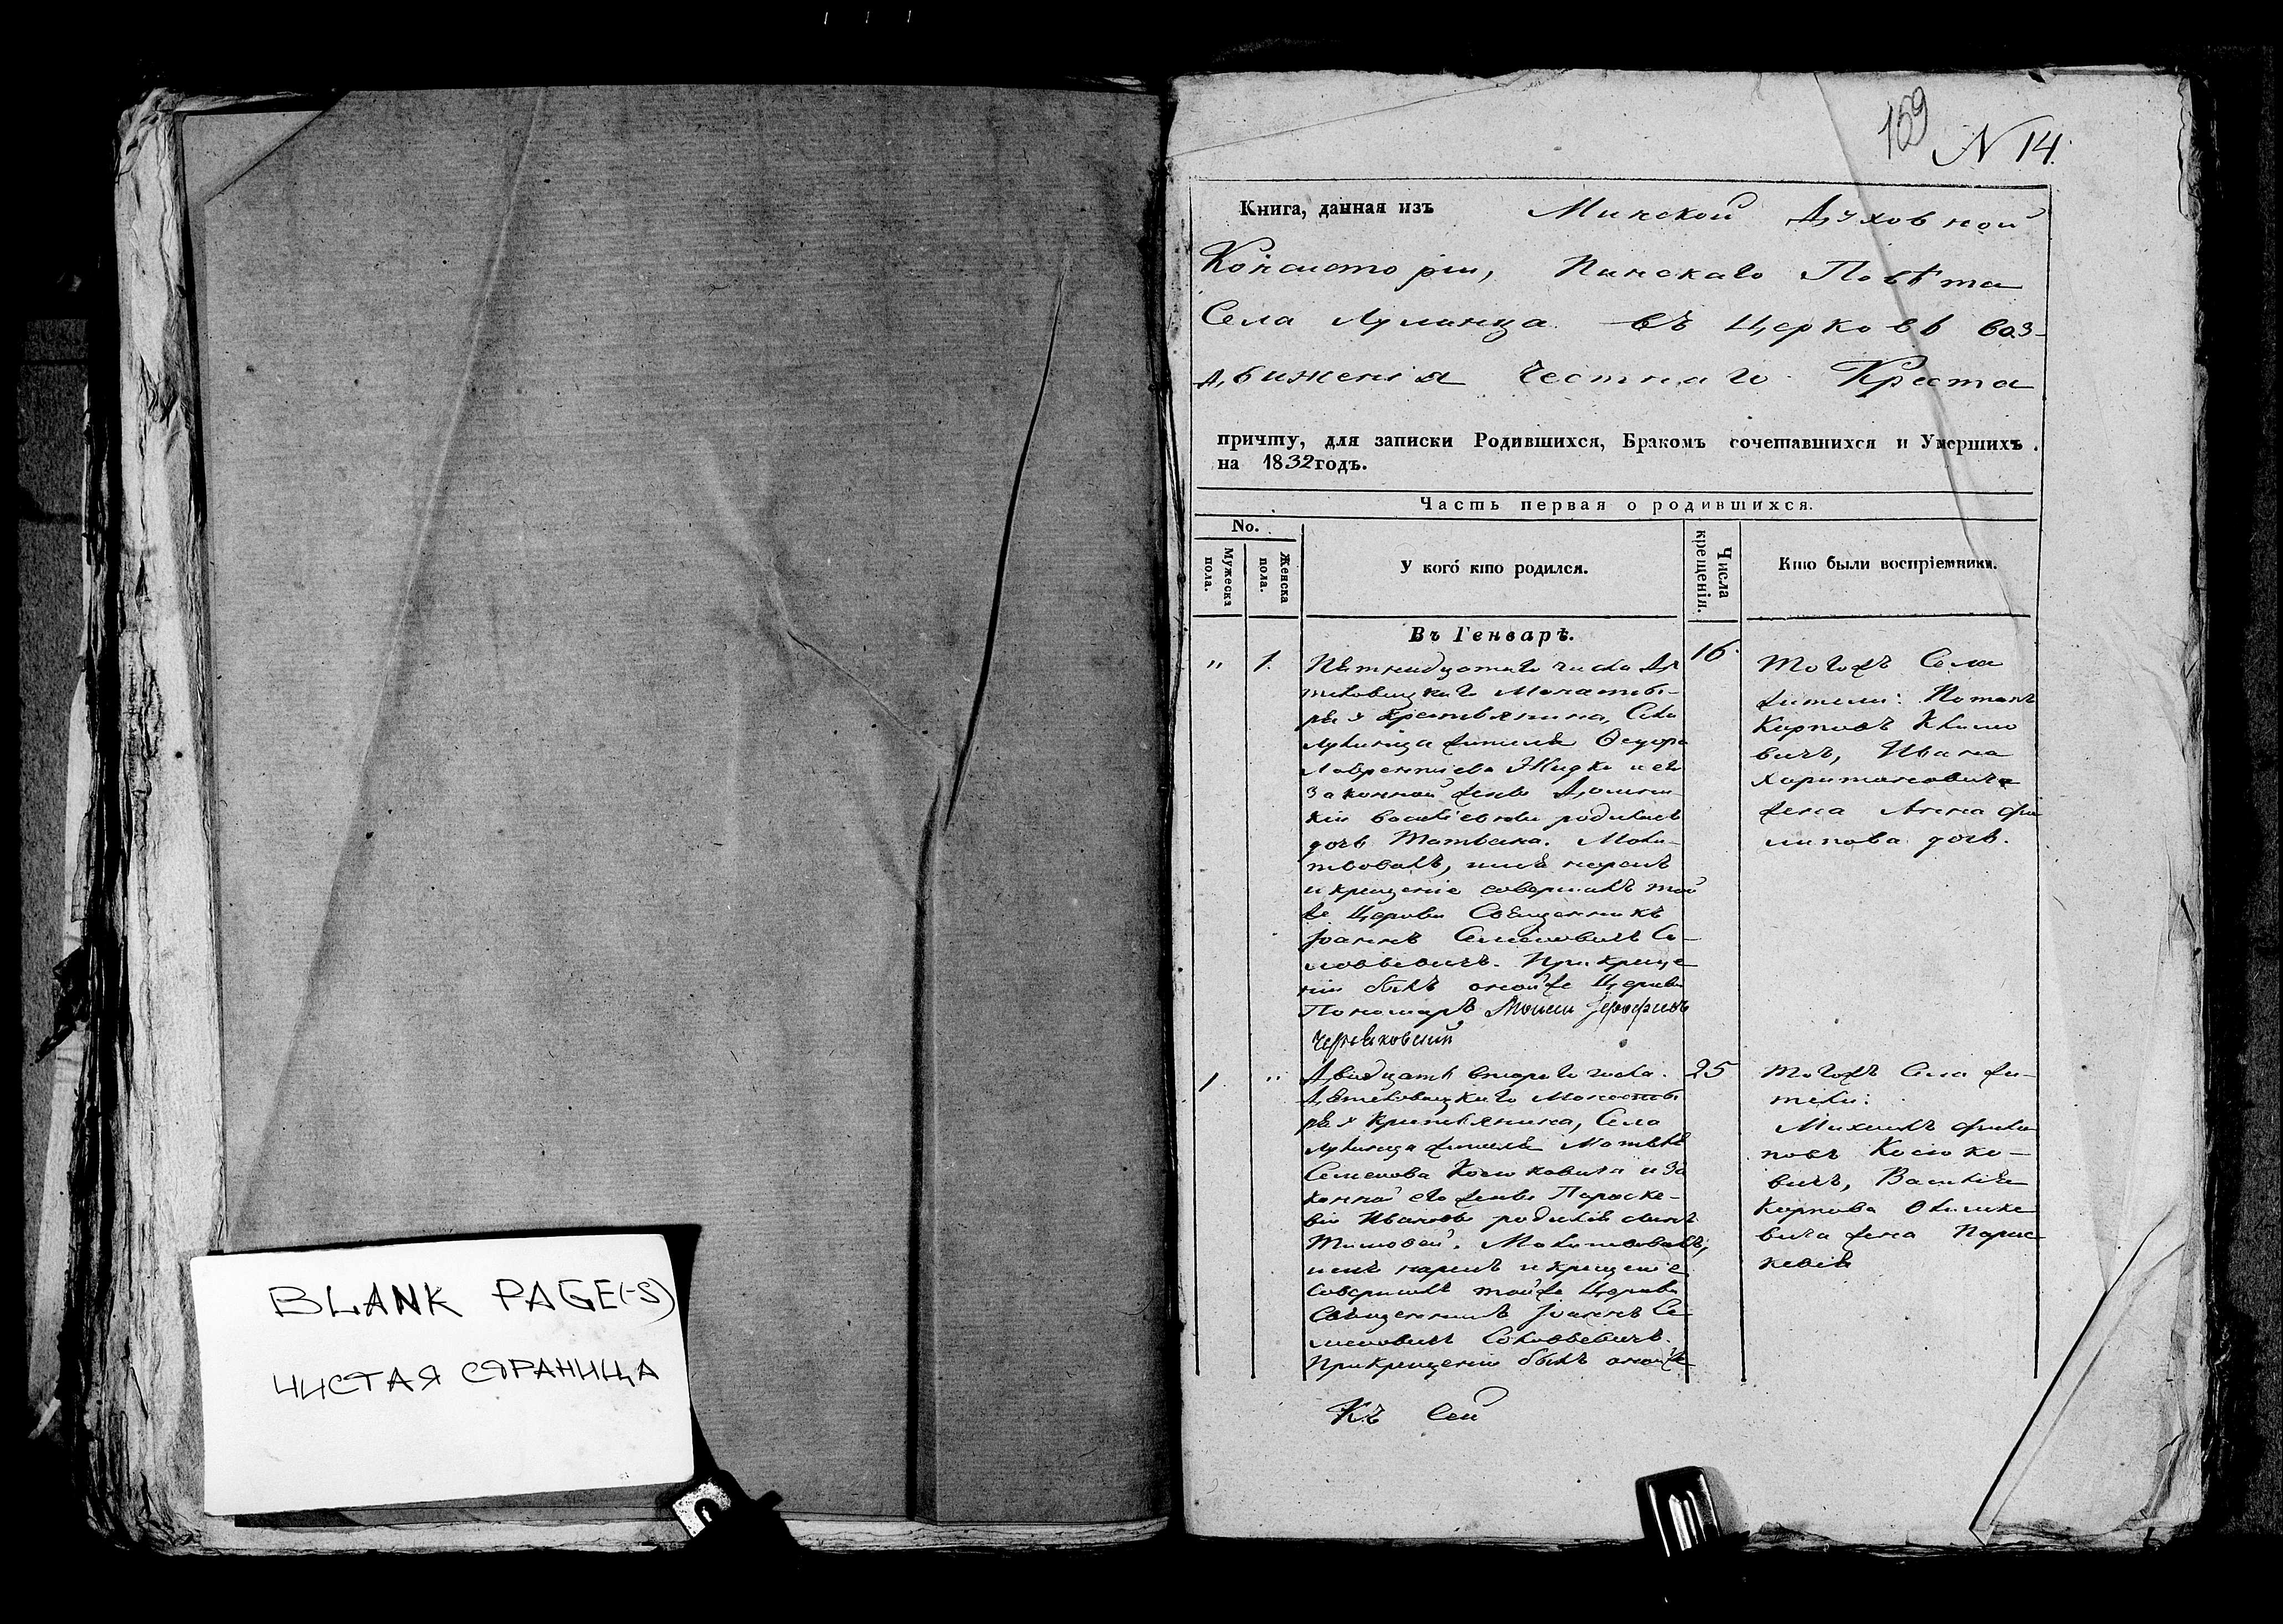 BLANK PAGE(-S)
ЧИСТАЯ СТРАНИЦА
159
N 14.
Книга, данная изъ Минской Духовной
Консисторіи, Пинскаго Повѣта
Села Лулинца въ Церковь воз-
движенія Честнаго Креста
причту, для записки Родившихся, Бракомъ сочетавшихся и Умершихъ
на 1832 годъ.
Часть первая о родившихся.
No.
Мужеска пола.
Женска пола.
У кого кто родился.
Числа крещенія.
Кто были воспріемники.
Въ Генварѣ.
" 1. 16.
Пятнадцатаго числа Дя-
теловицкаго Монасты-
ря крестьянина, Села
Лулинца жителя Ѳедора
Лаврентіева Жидка и его
законной жены Домни-
кіи Василіевны родилась
дочь Татьяна. Моли-
твовалъ, имя нарекъ
и крещеніе совершилъ той
же Церкви Священникъ
Іоаннъ Семеновичъ Со-
ловьевичъ. При креще-
ніи былъ оной же Церкви
Пономарь Моисей
Тогожъ Села
жители: Потапъ
Карповъ Климо
вичъ, Ивана
Харитоновича
жена Анна Фи
липова дочь.
1. " 25
Двадцать втораго числа
Дятеловицкаго Монасты
ря Крестьянина, Села
Лулинца жителя Матвѣя
Семенова Косюковича и за
конной его жены Параске-
віи Ивановы родился сынъ
Тимофей. Молитвовалъ,
имя нарекъ и крещеніе
совершилъ тойже Церкви
Священникъ Іоаннъ Се
меновичъ Соловьевичъ.
При крещеніи былъ онойже
Тогожъ Села жи-
тели:
Михаилъ Фили
повъ Косюко-
вичъ, Василія
Карпова
вича жена Парас
кевія
Къ сей